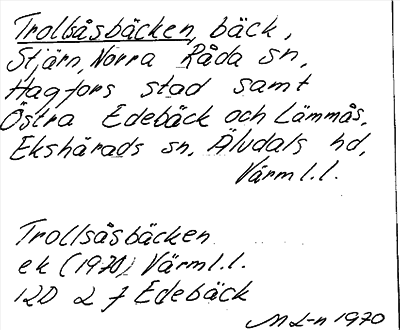 Trollsåsbäcken, bäck,
Stjärn, Norra Råda sn,
Hagfors stad samt
Östra Edebäck och Lämmås,
Ekshärads sn. Älvdals hd,
Värml.l.
Trollsåsbäcken
ek (1970) Värml.l.
12D 2 f Edebäck
M L-n 1970